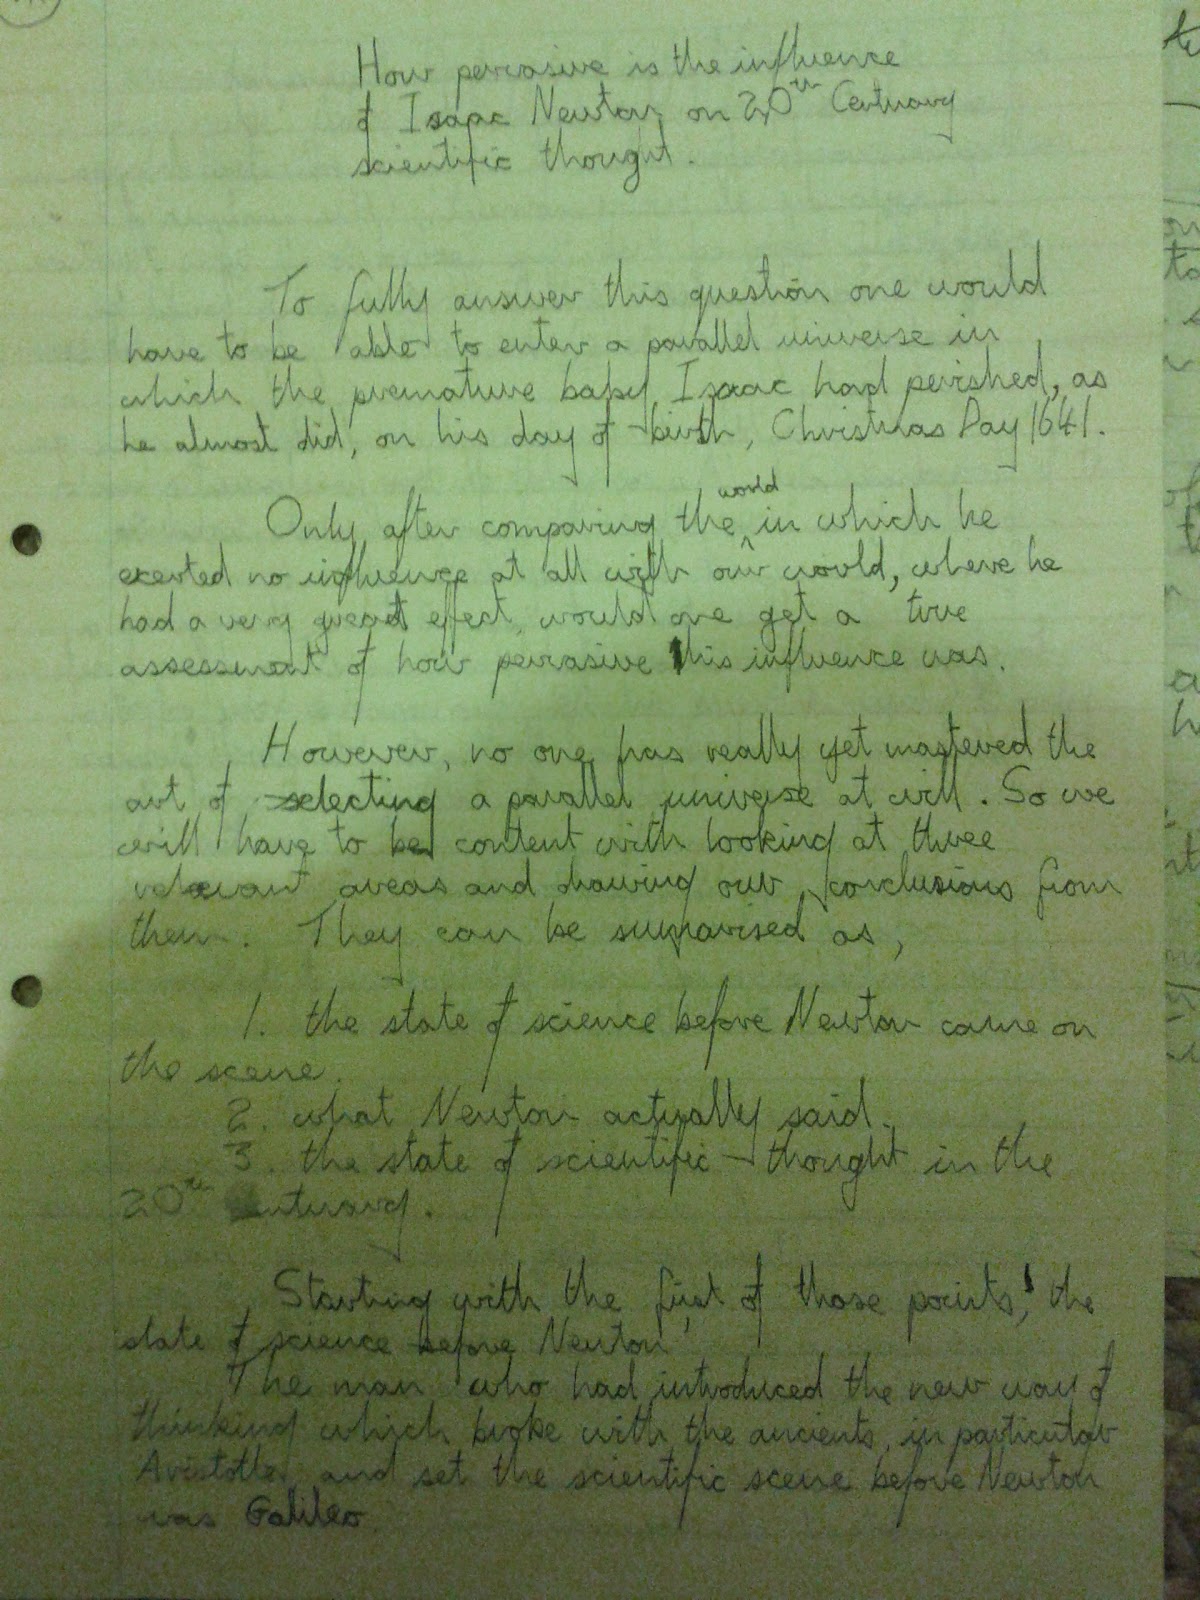 How pervasive is the influence
of Isaac Newton on 20th Centuary
scientific thought.
To fully answer this question one would
have to be able to enter a parallel universe in
which the premature baby Isaac had perished, as
he almost did, on his day of birth, Christmas Day 1641.
world
Only after comparing the ^ in which he
exerted no influence at all with our world, where he
had a very great effect, would one get a true
assessment of how pervasive this influence was.
However, no one has really yet mastered the
art of selecting a parallel universe at will. So we
will have to be content with looking at three
relevant areas and drawing our conclusions from
them. They can be summarised as,
1. the state of science before Newton came on
the scene.
2. what Newton actually said.
3. the state of scientific thought in the
20th Centuary.
Starting with the first of those points, the
state of science before Newton
The man who had introduced the new way of
thinking which broke with the ancients, in particular
Aristotle, and set the scientific scene before Newton
was Galileo.